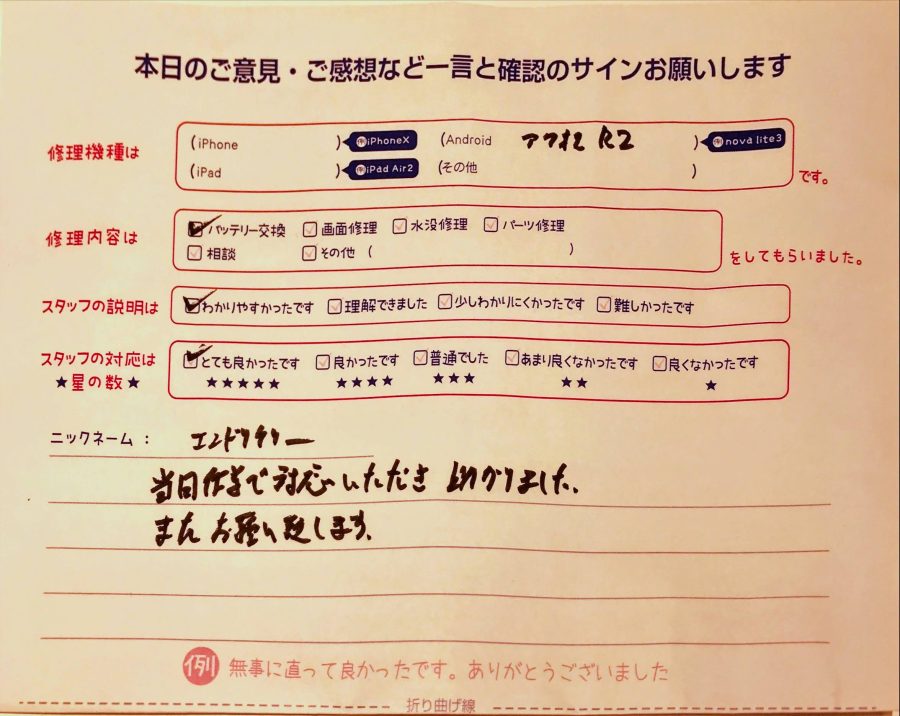 本日のご意見・ご感想など一言と確認のサインお願いします
修理機種は
(iPhone )例iPhoneX (Android アクオス R2 )例nova lite3
(iPad )例iPad Air2 (その他 )
です。
修理内容は
バッテリー交換 画面修理 水没修理 パーツ修理
相談 その他 ( )
をしてもらいました。
スタッフの説明は
わかりやすかったです 理解できました 少しわかりにくかったです 難しかったです
スタッフの対応は
★星の数★
とても良かったです 良かったです 普通でした あまり良くなかったです 良くなかったです
★★★★★ ★★★★ ★★★ ★★ ★
ニックネーム:
当日作業で対応いただき助かりました。
またお願い致します。
例 無事に直って良かったです。ありがとうございました
折り曲げ線